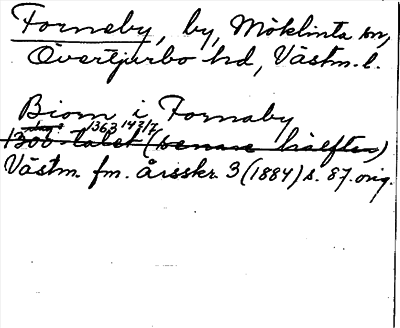 Fornaby, by, Möklinta sn,
Övertjurbo hd, Västm. l.
Biorn i Fornaby
1363 14/7
1300-talet (senare hälften)
Västm. fm. årsskr. 3 (1884) s. 87. orig.